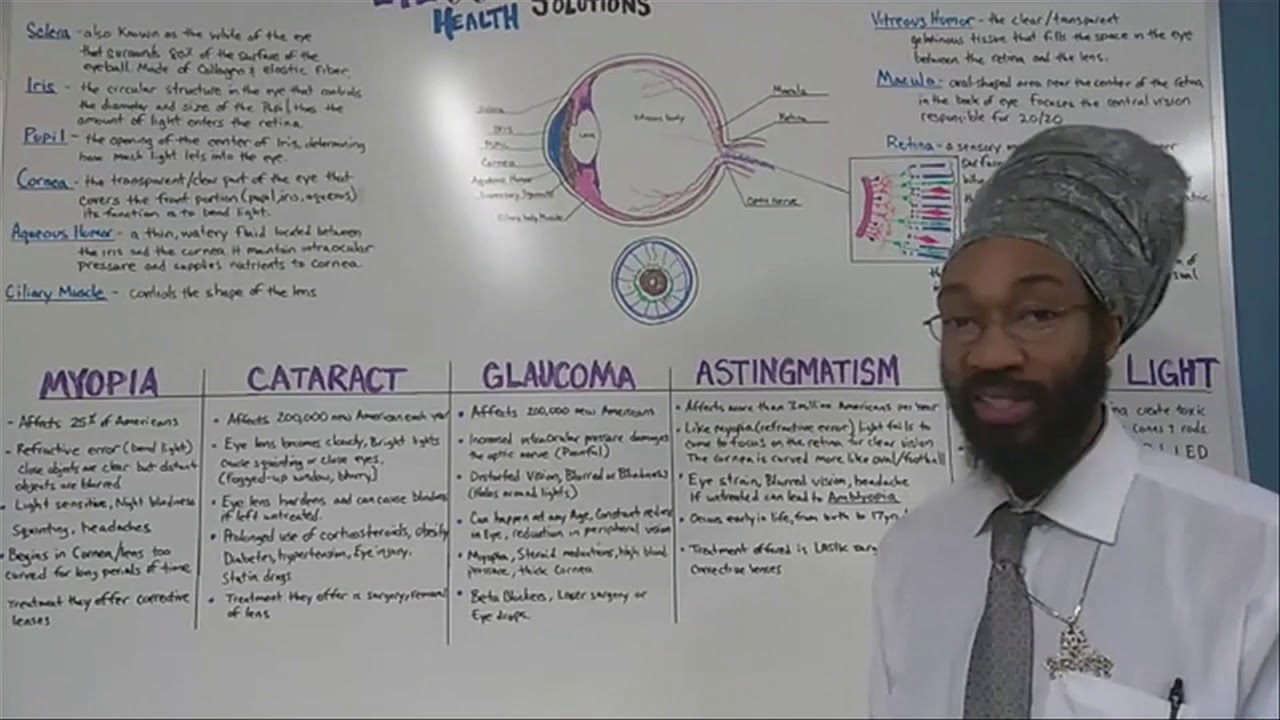 HEALTH SOLUTIONS
Sclera - also known as the white of the eye
that surrounds 80% of the surface of the
eyeball. Made of Collagno & elastic fiber.
Iris - the circular structure in the eye that controls
the diameter and size of the Pupil, thus the
amount of light enters the retina.
Pupil - the opening of the center of Iris, determining
how much light lets into the eye.
Cornea - the transparent/clear part of the eye that
covers the front portion (pupil, iris, aqueous)
its function is to bend light.
Aqueous Humor - a thin, watery fluid located between
the iris and the cornea it maintain intraocular
pressure and supplies nutrients to Cornea.
Ciliary Muscle - controls the shape of the lens
Sclera
IRIS
PUPIL
Cornea
Aqueous Humor
Ciliary body Muscle
Lens
Vitreous body
Macula
Retina
Optic Nerve
Vitreous Humor - the clear/transparent
gelatinous tissue that fills the space in the eye
between the retina and the lens.
Macula - oval-shaped area near the center of the retina
in the back of eye. Focuses the central vision
responsible for 20/20
Retina - a sensory
MYOPIA
- Affects 25% of Americans
- Refractive error (bend light)
close objects are clear but distant
objects are blurred
- Light sensitive, Night blindness
Squinting, headaches
• Begins in Cornea/lens too
curved for long periods of time
Treatment they offer corrective
lenses
CATARACT
• Affects 200,000 new American each year
• Eye lens becomes cloudy, Bright lights
cause squinting or close eyes.
(fogged-up window, blurry)
• Eye lens hardens and can cause blindness
if left untreated.
• Prolonged use of corticosteroids, obesity
Diabetes, hypertension, Eye injury.
Statin drugs
• Treatment they offer is surgery, removal
of lens
GLAUCOMA
• Affects 200,000 new Americans
• Increased intraocular pressure damages
the optic nerve (Painful)
• Distorted Vision, Blurred or Blindness
(Halos around lights)
• Can happen at any Age, Constant redness
in Eye, reduction in peripheral vision
• Myopia, Steroid medications, high blood
pressure, thick Cornea
• Beta Blockers, Laser surgery or
Eye drops.
ASTINGMATISM
• Affects more than 3 million Americans per Year
• Like myopia (refractive error) light fails to
come to focus on the retina for clear vision
The cornea is curved more like oval/football
• Eye strain, Blurred vision, headache
If untreated can lead to Amblyopia
• Occurs early in life, from birth to 17yrs
• Treatment offered is LASIK
corrective lenses
LIGHT
create toxic
cones & rods